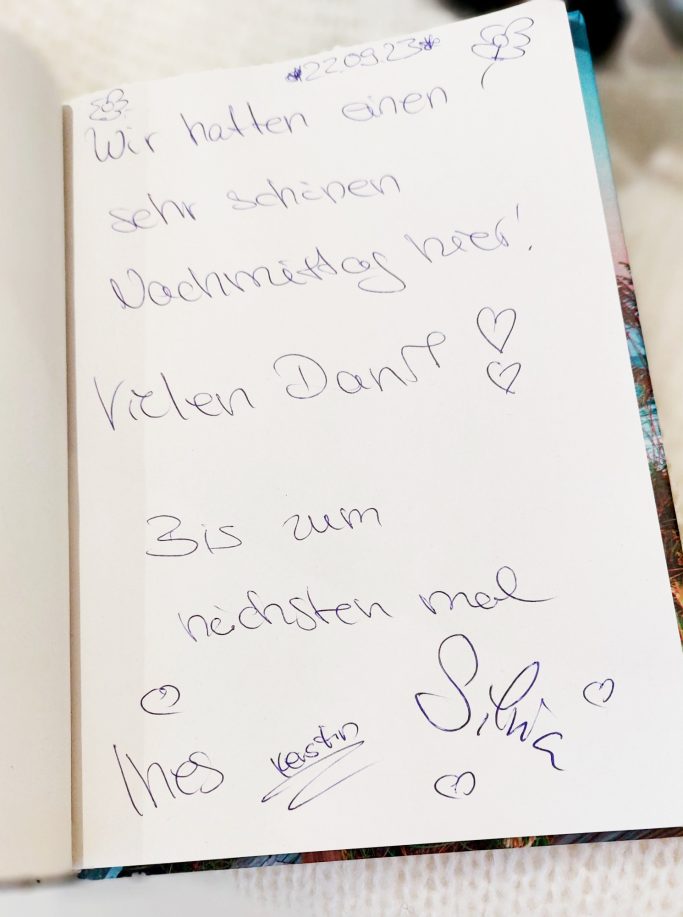 *22.09.23*
Wir hatten einen
sehr schönen
Nachmittag hier!
Vielen Dank ♡
♡
Bis zum
nächsten mal
Ines Kerstin Silvia